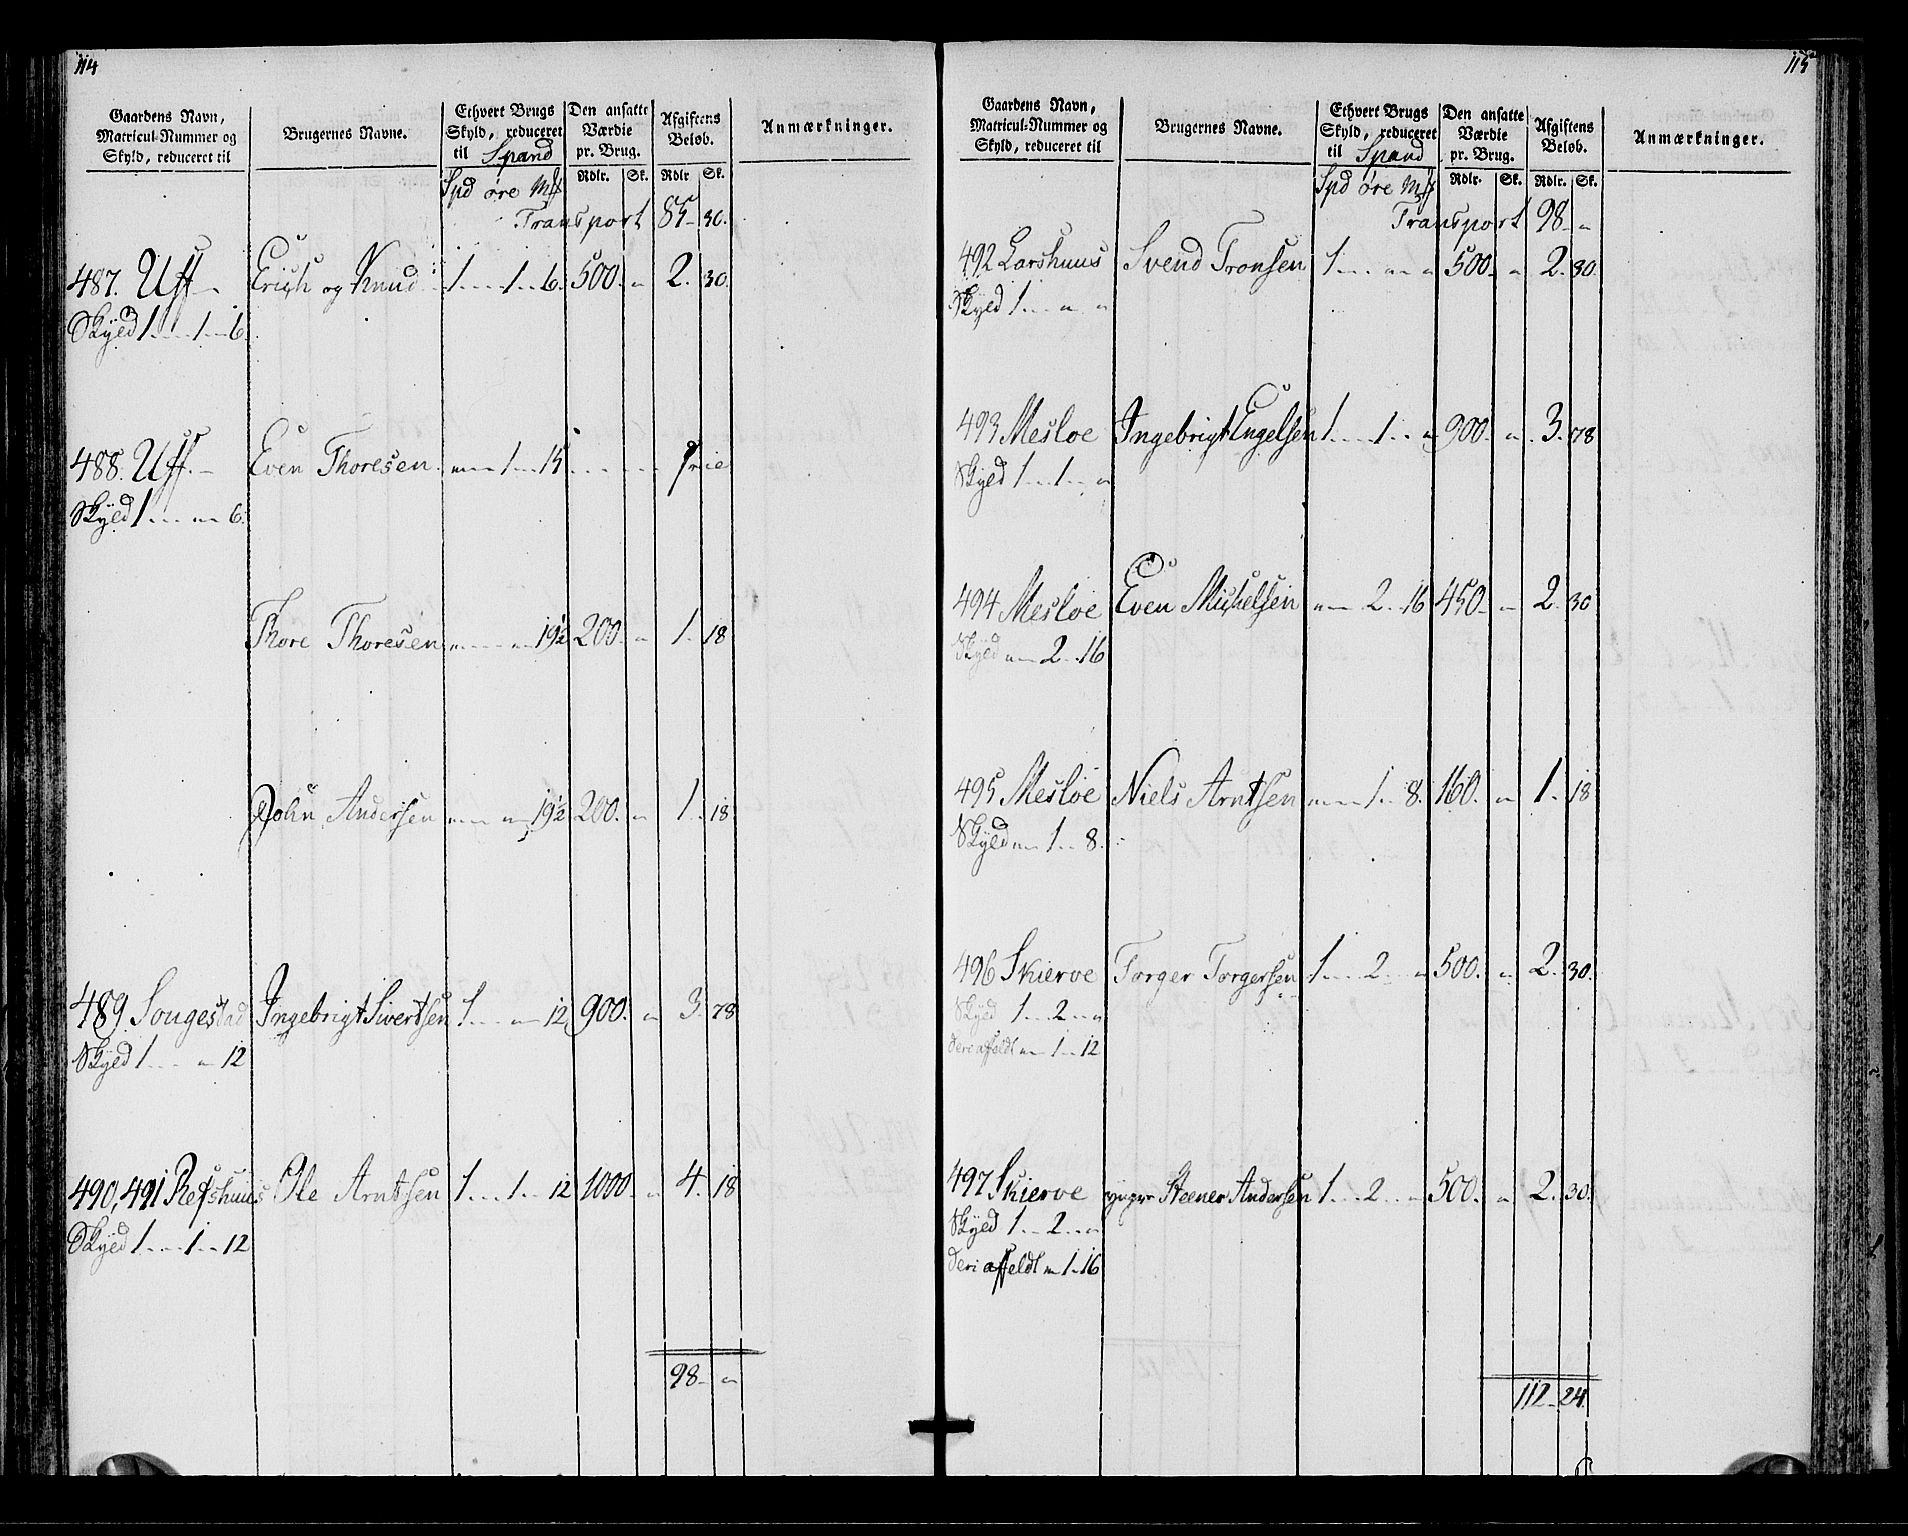 114
Gaardens Navn, Matricul-Nummer og Skyld, reduceret til
Brugernes Navne.
Ethvert Brugs Skyld, reduceret til Spand
Den ansatte Værdie pr. Brug.
Afgiftens Beløb.
Anmærkninger.
Spd øre Mß
Rdlr. Sk. Rdlr Sk.
Transport 85 - 30.
487. Uff - Erich og Knud 1 - - 1 - 6. 500. - " 2. 30.
Skyld 1 - - 1 - 6.
488. Uff. - Even Thoresen " - 1 - 15 - - - - frie
Skyld 1 - - " - 6.
Thore Thoresen " - - " - 19½ 200. - " 1. 18
John Andersen " - - " - 19½ 200. - " 1. 18
489 Songestad Ingebrigt Sivertsen 1 - - " - 12 900. " 3. 78
Skyld 1 - - " 12
490, 491 Refshuus Ole Arntsen 1 - - 1 - 12 1000. " 4. 18
Skyld 1 - - 1 - 12
98 - "
115
Gaardens Navn, Matricul-Nummer og Skyld, reduceret til
Brugernes Navne.
Ethvert Brugs Skyld, reduceret til Spand
Den ansatte Værdie pr. Brug.
Afgiftens Beløb.
Anmærkninger.
Spd øre Mß
Rdlr. Sk. Rdlr. Sk.
Transport 98 - "
492 Larshuus Svend Tronsen 1 - - " - " 500. - " 2. 30.
Skyld 1 - - " - "
493 Mesloe Ingebrigt Engelsen 1 - - 1 - " 900. - " 3. 78
Skyld 1 - - 1 - "
494 Mesloe Even Michelsen " - 2 - 16 450. - " 2. 30
Skyld " - 2 - 16
495 Mesloe Niels Arntsen " - - 1 - 8. 160. - " 1. 18
Skyld " - 1 - 8.
496 Skierve Torger Torgersen 1 - - 2 - " 500. - " 2. 30.
Skyld 1 - 2 - "
deri affeldt " - 1 - 12
497 Skierve Steener Andersen 1 - - 2 - " 500. - " 2. 30.
Skyld 1 - 2 - "
deri affeldt " - 1 - 16
112 - 24.